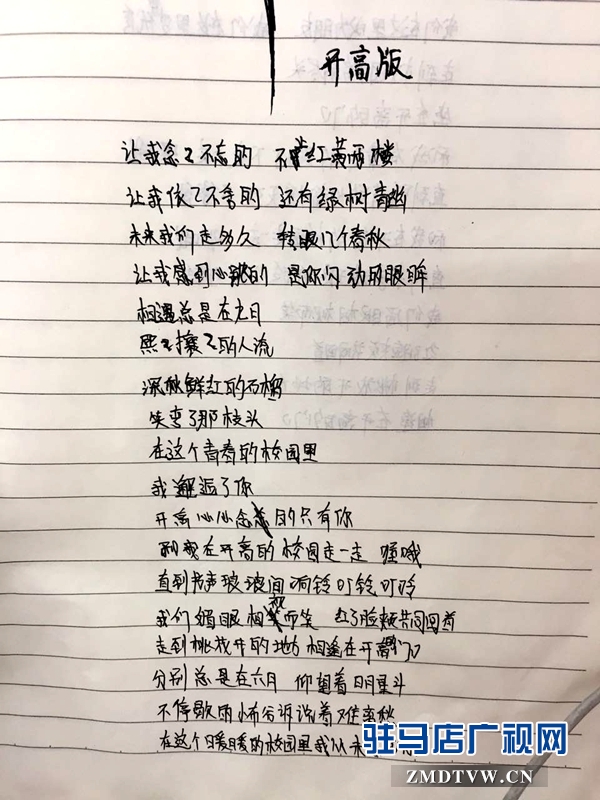 开高版
让我念々不忘的 不单红黄两楼
让我依々不舍的 还有绿树青幽
未来我们走多久 转眼几个春秋
让我感到心跳的 是你闪动的眼眸
相遇总是在九月
熙々攘々的人流
深秋鲜红的石榴
笑弯了那枝头
在这个青春的校园里
我邂逅了你
开高心心念念的只有你
和我在开高的校园走一走 喔哦
直到书声琅琅间响铃叮铃叮呤
我们媚眼相视而笑 红了脸颊共同回首
走到桃花开的地方 相逢在开高门口
分别总是在六月 仰望着明星斗
不停歇雨水布谷诉说着难离秋
在这个暖暖的校园里我从未
驻马店广视网
ZMDTVW.CN